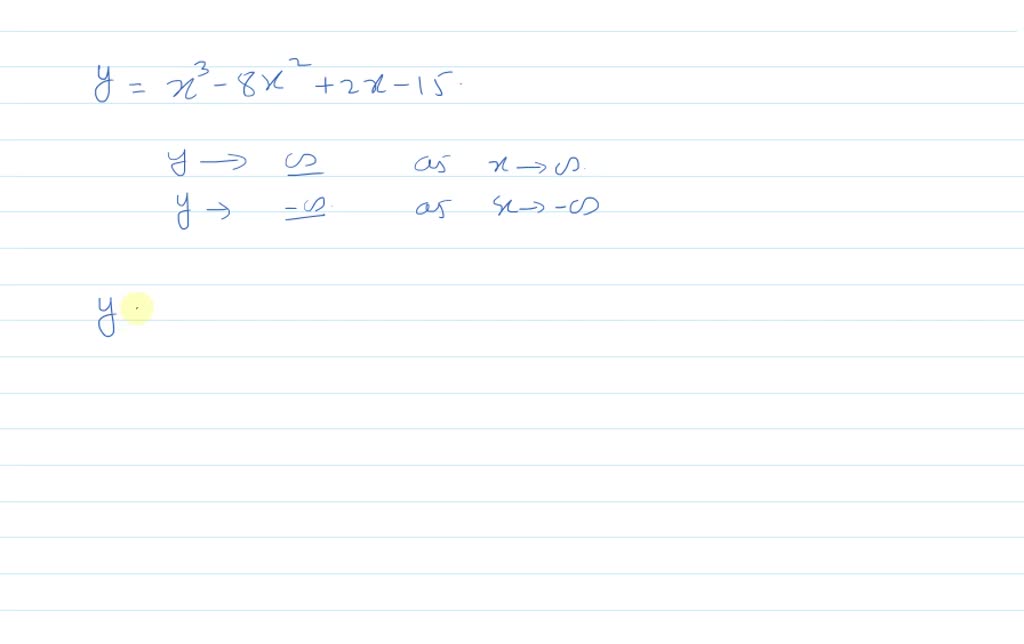 y = x³ - 8x² + 2x - 15.
y → ∞ as x → ∞.
y → -∞. as x → -∞
y